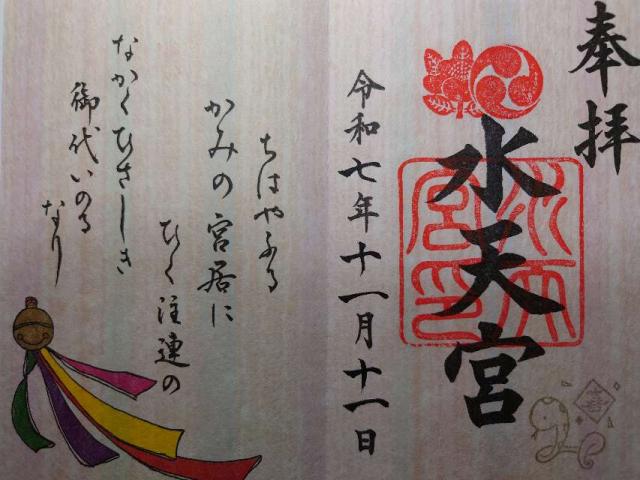 奉拝
水天宮
令和七年十一月十一日
ちはやふる
かみの宮居に
ひく注連の
なかくひさしき
御代いのる
なり